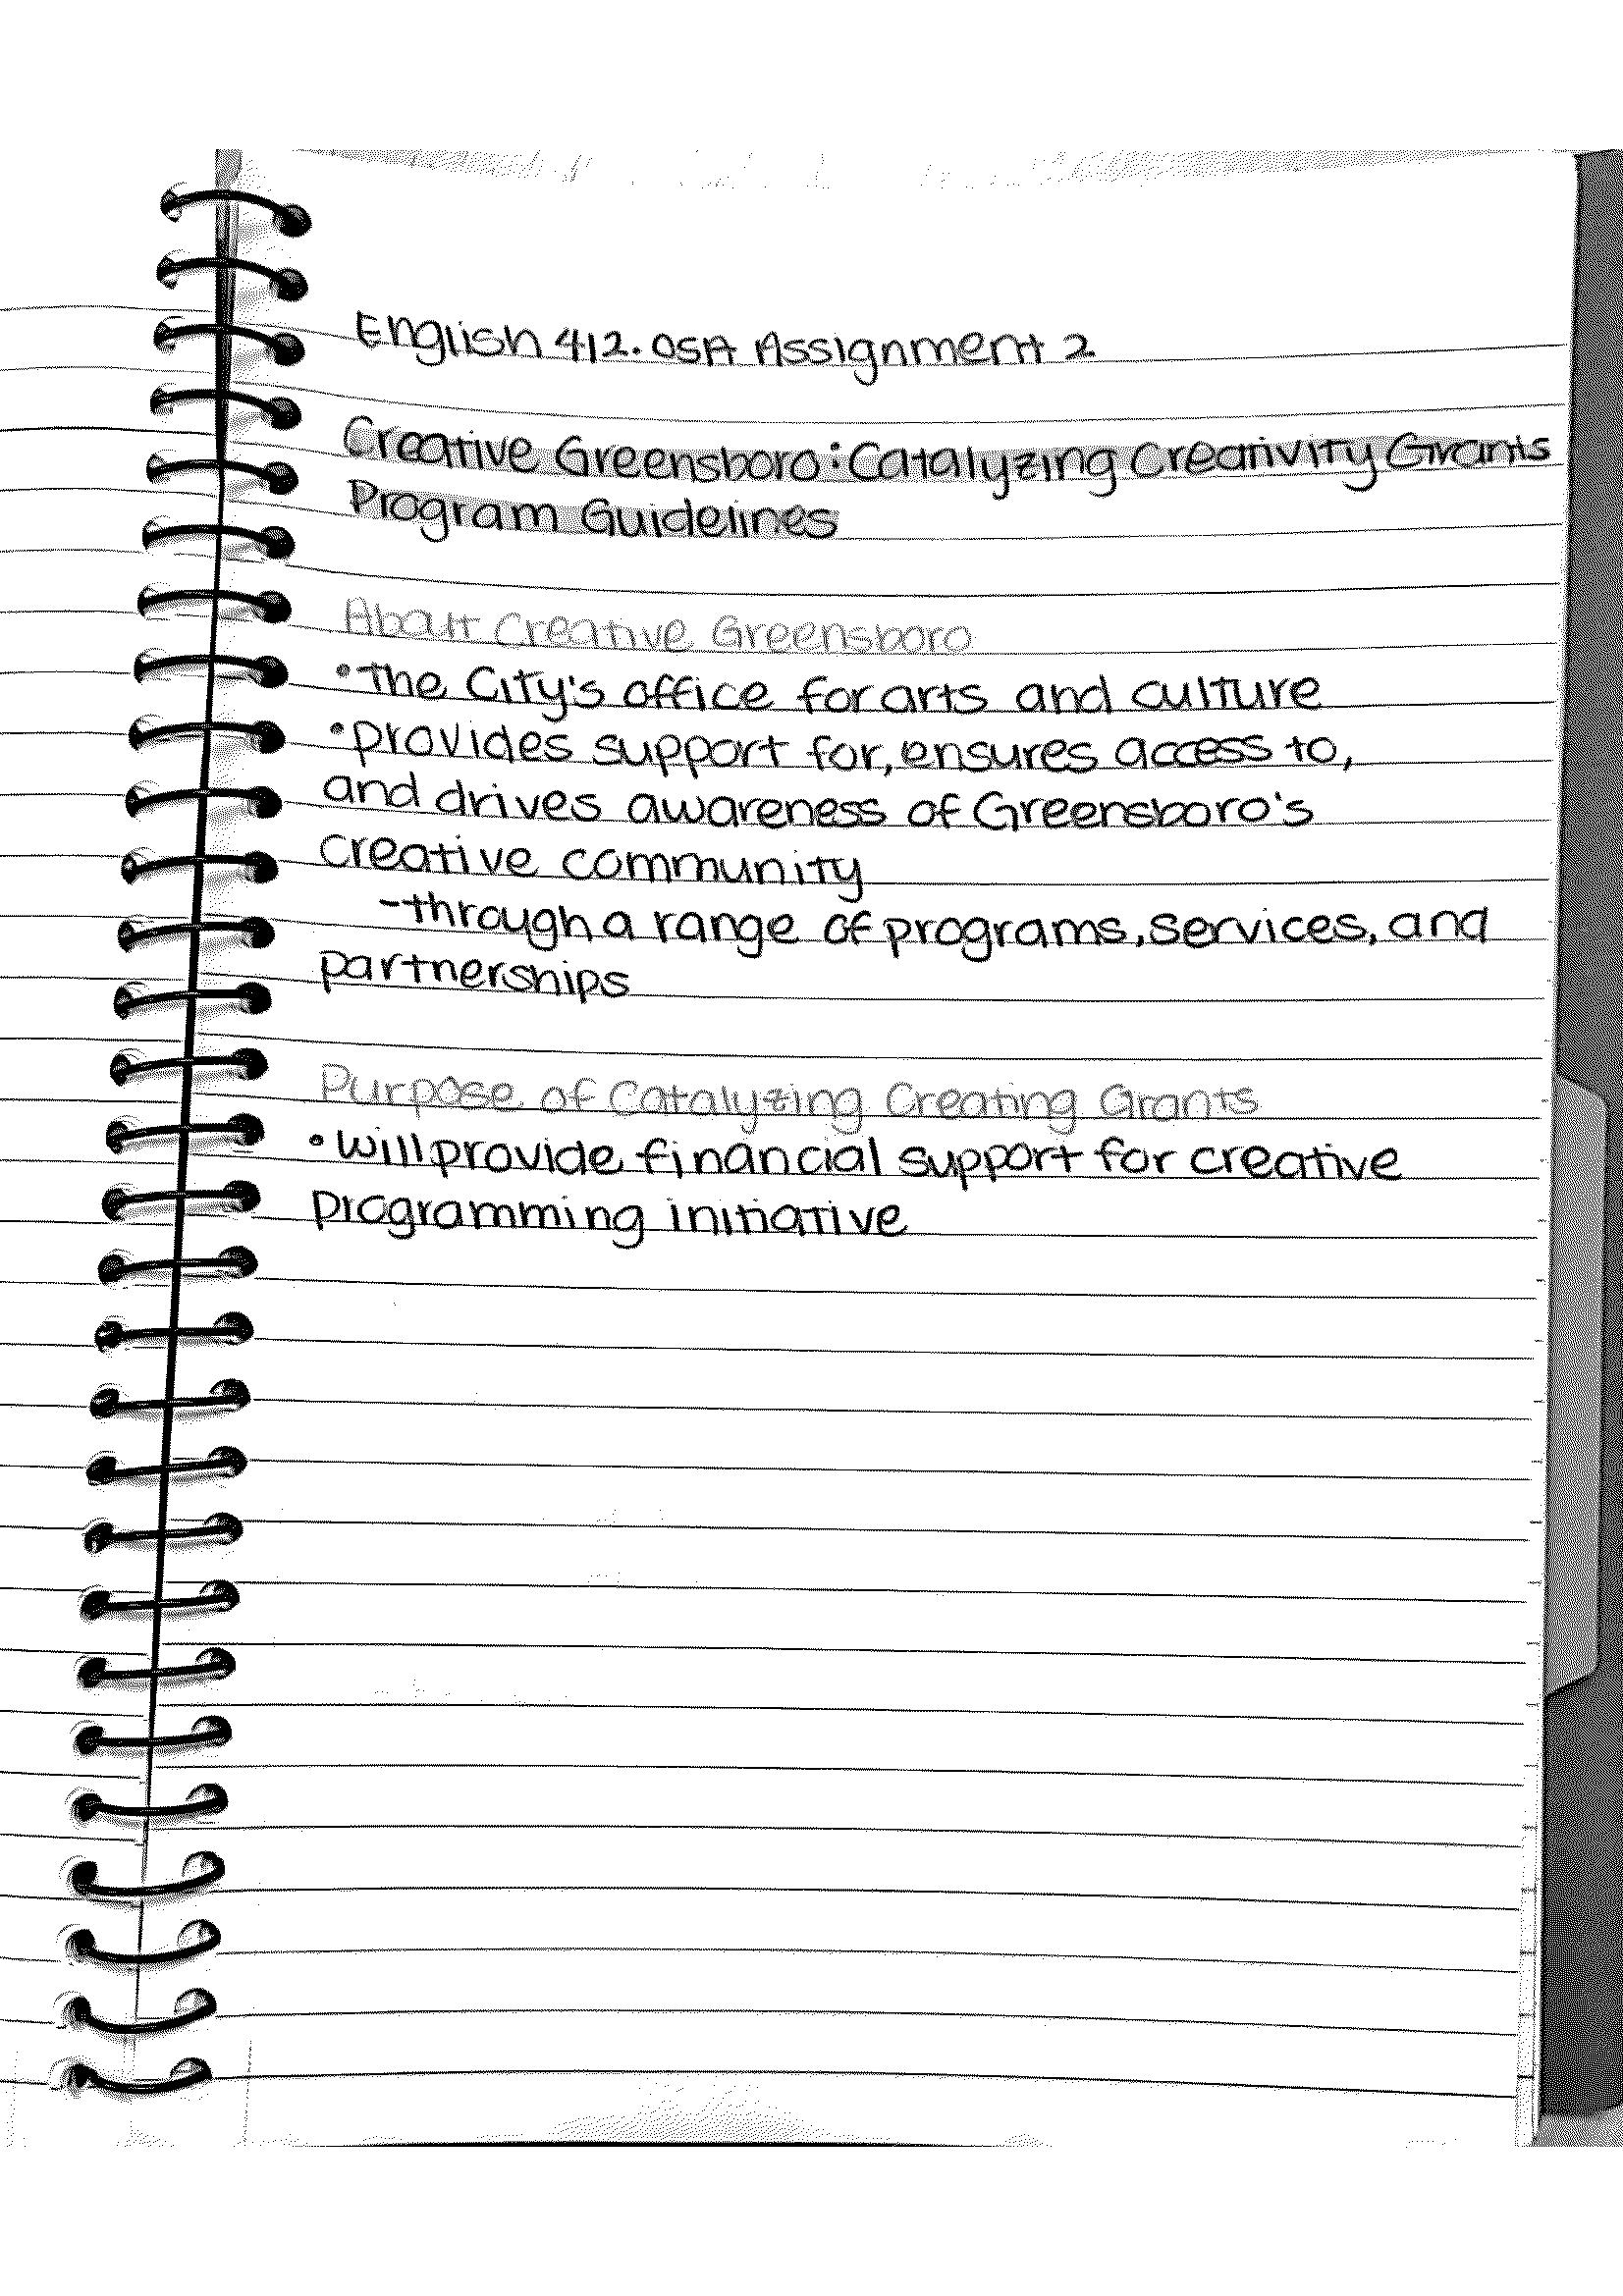 English 412.05A Assignment 2
Creative Greensboro: Catalyzing Creativity Grants
Program Guidelines
About Creative Greensboro
•The City's office for arts and culture
•provides support for, ensures access to,
and drives awareness of Greensboro's
creative community
-through a range of programs, services, and
partnerships
Purpose of Catalyzing Creating Grants
•will provide financial support for creative
programming initiative